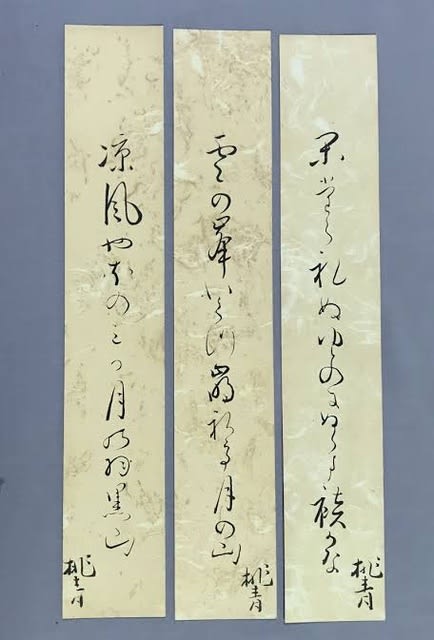 かたられぬゆとのにぬらす袂かな
桃青
雲の峯いくつ崩れて月の山
桃青
涼風やほの三か月の羽黒山
桃青